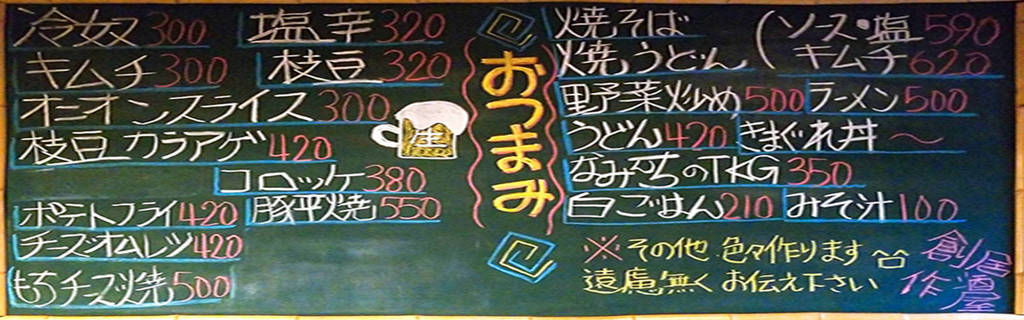 冷奴300 塩辛320
キムチ300 枝豆320
オニオンスライス300
枝豆カラアゲ420
コロッケ380
ポテトフライ420 豚平焼550
チーズオムレツ420
もちチーズ焼500
生
おつまみ
焼そば
焼うどん
(ソース・塩590
キムチ620
野菜炒め500 ラーメン500
うどん420 きまぐれ丼〜
なみえちのTKG350
白ごはん210 みそ汁100
※その他色々作ります
遠慮無くお伝え下さい
創作
居酒屋